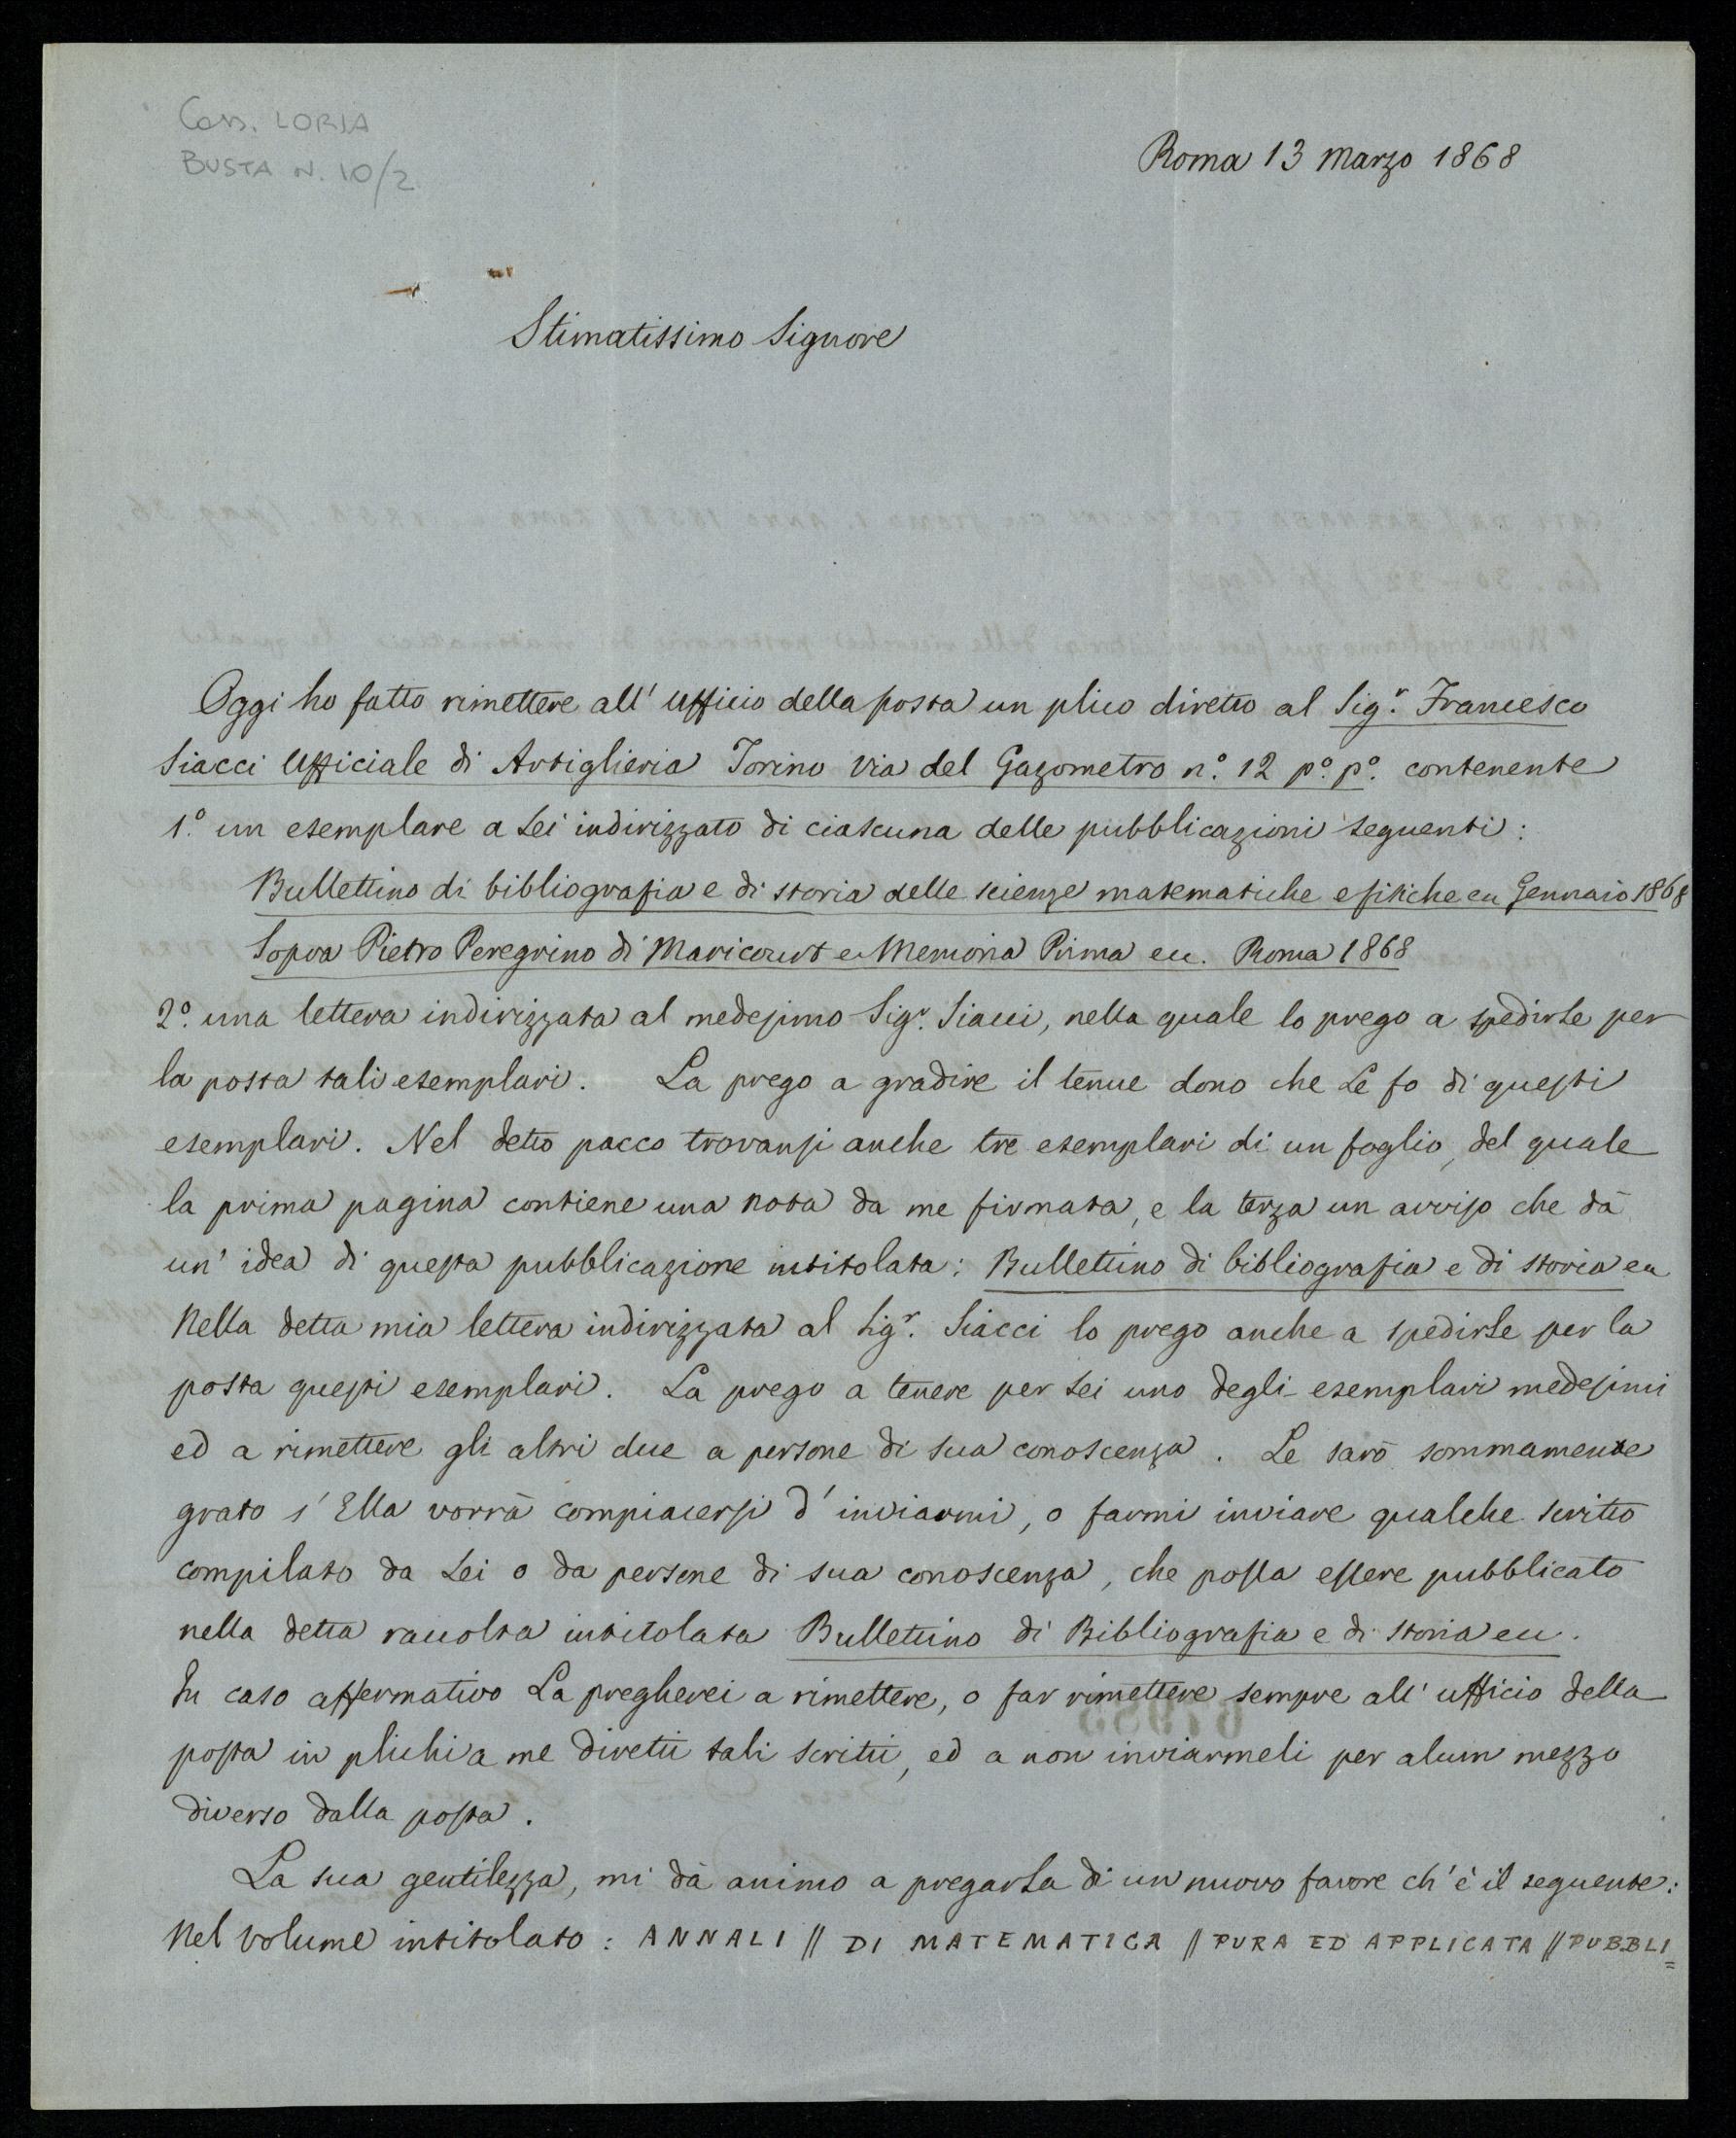 Cass. LORIA
BUSTA N. 10/2
Roma 13 Marzo 1868
Stimatissimo Signore
Oggi ho fatto rimettere all' Ufficio della posta un plico diretto al Sig.r Francesco
Siacci Ufficiale di Artiglieria Torino Via del Gazometro n.o 12 p.o p.o contenente
1.o un esemplare a Lei indirizzato di ciascuna delle pubblicazioni seguenti:
Bullettino di bibliografia e di storia delle scienze matematiche e fisiche ec Gennaio 1868
Sopra Pietro Peregrino di Maricourt e Memoria Prima ecc. Roma 1868
2.o una lettera indirizzata al medesimo Sig.r Siacci, nella quale lo prego a spedirLe per
la posta tali esemplari. La prego a gradire il tenue dono che Le fo di questi
esemplari. Nel detto pacco trovansi anche tre esemplari di un foglio, del quale
la prima pagina contiene una nota da me firmata, e la terza un avviso che dà
un' idea di questa pubblicazione intitolata: Bullettino di bibliografia e di storia ec
Nella detta mia lettera indirizzata al Sig.r Siacci lo prego anche a spedirLe per la
posta questi esemplari. La prego a tenere per Lei uno degli esemplari medesimi
ed a rimettere gli altri due a persone di sua conoscenza. Le sarò sommamente
grato s' Ella vorrà compiacersi d' inviarmi, o farmi inviare qualche scritto
compilato da Lei o da persone di sua conoscenza, che possa essere pubblicato
nella detta raccolta intitolata Bullettino di Bibliografia e di storia ecc.
In caso affermativo La pregherei a rimettere, o far rimettere sempre all' ufficio della
posta in plichi a me diretti tali scritti, ed a non inviarmeli per alcun mezzo
diverso dalla posta.
La sua gentilezza, mi dà animo a pregarLa di un nuovo favore ch' è il seguente:
Nel volume intitolato: ANNALI // DI MATEMATICA // PURA ED APPLICATA // PUBBLI=